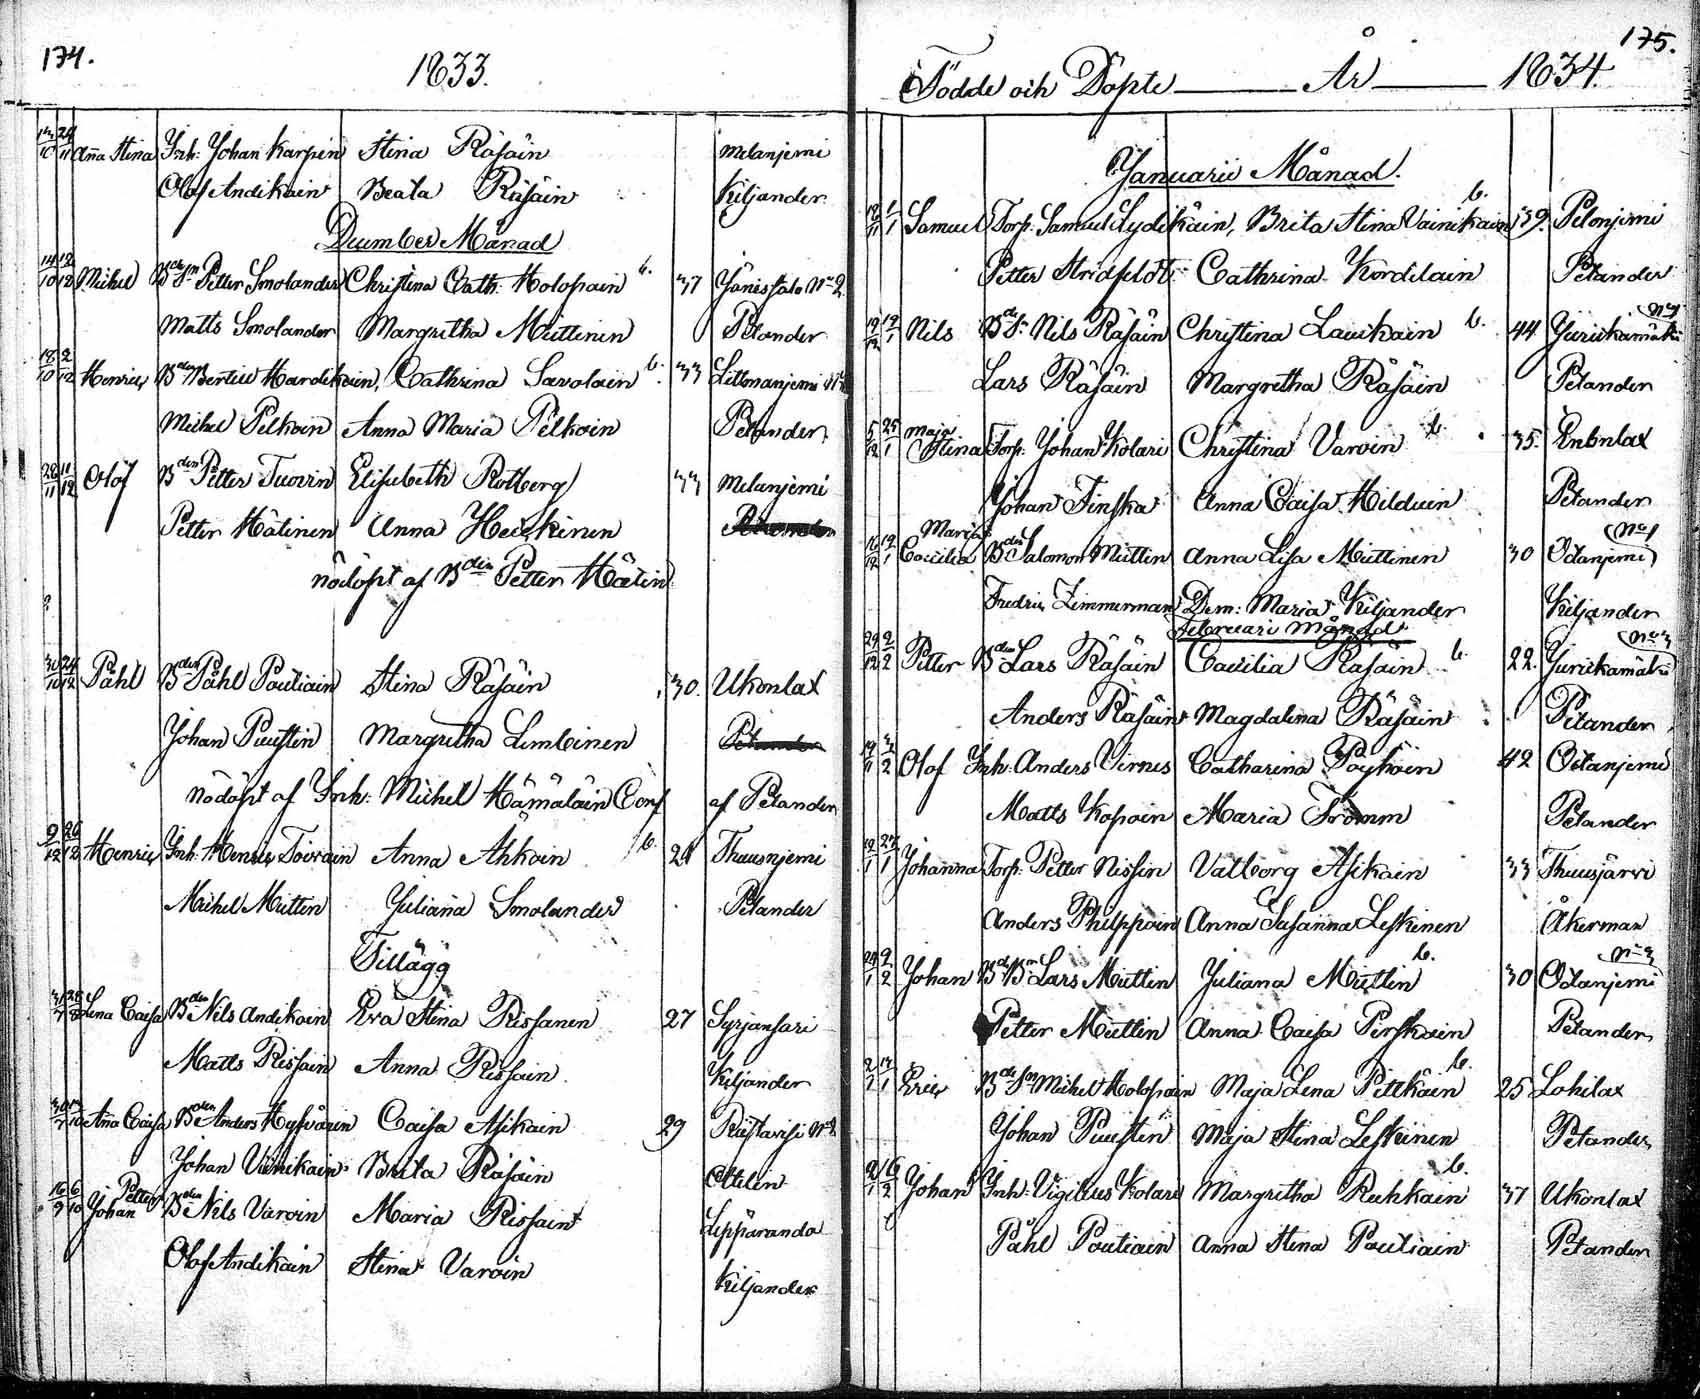 174.
1833.
13/10 24/11 Aña Stina Inh: Johan Karpin Stina Räsäin Melanjemi
Olof Andikain Beata Räsäin Kiljander
December Månad
14/10 12/12 Michel Petter Smolander Christina Cath: Holopain b. 37 Jänissalo No 2
Matts Smolander Margretha Muttinen Petander
18/10 2/12 Henric Bden Bertil Hardikain, Cathrina Savolain b. 33 Littmanjemi
Michel Pelkoin Anna Maria Pelkoin Petander
28/11 11/12 Olof Bden Petter Tuovin Elisabeth Rotberg 33 Melanjemi
Petter Hätinen Anna Heickinen
nödöpt af Bden Petter Hätin
30/10 24/12 Påhl Bden Påhl Poutiain Stina Räsäin 30. Ukonlax
Johan Puustin Margretha Limbinen Petander
nödöpt af Inh: Michel Hämäläin Conf af Petander
9/12 26/12 Henric Inh: Henric Toivain Anna Ahkoin b. 24 Thuusnjemi
Michel Mutten Juliana Smolander Petander
Tillägg
Lena Caisa Bden Nils Andikain Eva Stina Rissanen 27 Syrjänsari
Matts Rissain Anna Rissain Kiljander
Aña Caisa Bden Anders Hyfvärin Caisa Asikain 29 Riistavesi No 2
Johan Vänikain Brita Räsäin
16/9 6/10 Petter Johan Bden Nils Varoin Maria Rissain Lippäranda
Olof Andikain Stina Varoin Kiljander
175.
Födde och Döpte År 1834.
Januarii Månad.
1/1 Samuel Torp. Samuel Lydikäin, Brita Stina Vainikain b. 39. Pelonjemi
Petter Stridsfeldt Cathrina Kordilain Petander
Nils Nils Räsäin Christina Laukain b. 44 Juurikamäki No 1
Lars Räsäin Margretha Räsäin Petander
5/12 25/1 Maja Stina Torp. Johan Kolari Christina Varoin b. 35. Enonlax
Johan Finska Anna Caisa Hilduin Petander
16/12 Maria Cæcilia Bden Salomon Muttin Anna Lisa Muttinen 30 Ödanjemi No 1
Fredric Zimmerman Dem: Maria Kiljander Kiljander
Februarii Månad
29/12 2/2 Petter Bden Lars Räsäin Cæcilia Räsäin b. 22. Juurikamäki No 3
Anders Räsäin Magdalena Räsäin Petander
Olof Inh. Anders Virnes Catharina Pöyhöin 42 Ödanjemi
Matts Kopoin Maria Fromm Petander
Johanna Torp. Petter Nissin Valborg Asikain 33 Thuusjärvi
Anders Philppain Anna Susanna Leskinen Åkerman
Johan Lars Muttin Juliana Muttin b. 30 Ödanjemi No 3
Petter Muttin Anna Caisa Perskain Petander
Eric Michel Holopain Maja Lena Pitkäin b. 25 Lohilax
Johan Puustin Maja Stina Leskinen Petander
Johan Inh: Vigilius Kolari Margretha Ruhkain b. 37 Ukonlax
Påhl Poutiain Anna Stina Poutiain Petander